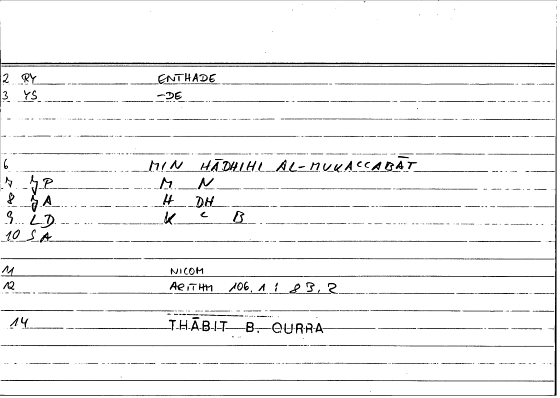 2 RY ENTHADE
3 YS -DE
6 MIN HĀDHIHI AL-MUKACCABĀT
7 JP M N
8 JA H DH
9 LD K C B
10 SA
11 NICOM
12 ARITHM 106,1 : 83,2
14 THĀBIT B. QURRA